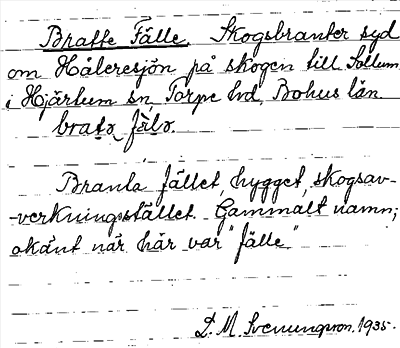 Bratte Fälle Skogsbranter syd
om Håleresjön på skogen till Sollum
i Hjärtum sn, Torpe hd, Bohus län.
bratə fälə.
Branta fället, hygget, skogsav-
-verkningsstället. Gammalt namn;
okänt när här var "fälle"
D. M. Svenungsson. 1935.